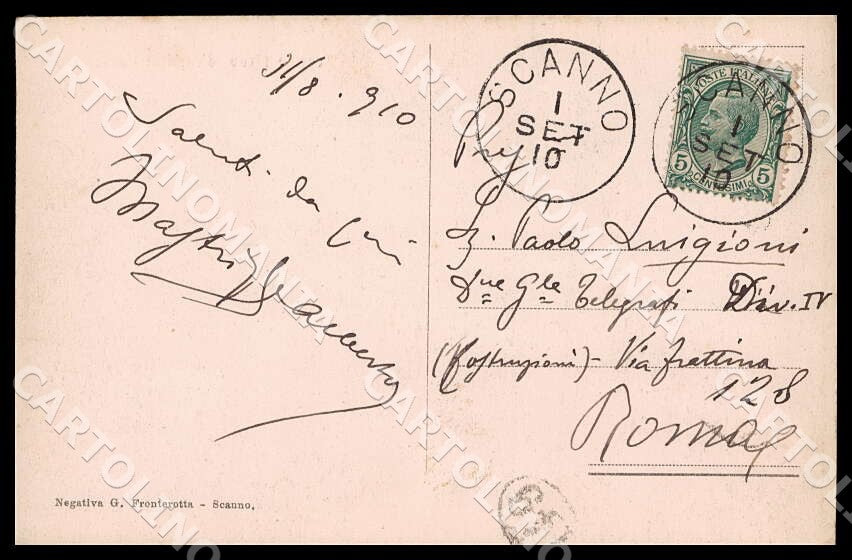 31/8 . 910
Saluti da qui
SCANNO
1
SET
10
POSTE ITALIANE
5 CENTESIMI 5
SCANNO
1
SET
10
Paolo Luigioni
Gle Telegrafi Div. IV
(Costruzioni) - Via Frattina
128
Roma
Negativa G. Fronterotta - Scanno.
CARTOLINOMANIA